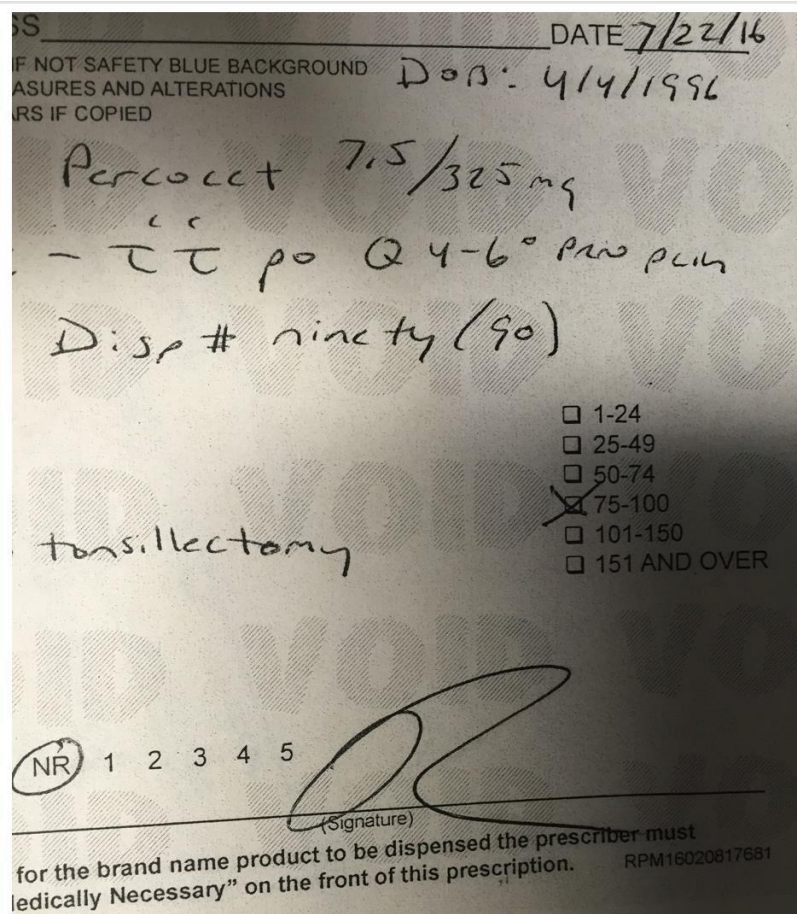 SS DATE 7/22/16
IF NOT SAFETY BLUE BACKGROUND DOB: 4/4/1996
ASURES AND ALTERATIONS
ARS IF COPIED
Percocet 7.5/325 mg
- TT po Q 4-6° prn pain
Disp # ninety (90)
1-24
25-49
50-74
75-100
101-150
151 AND OVER
tonsillectomy
NR 1 2 3 4 5
(Signature)
for the brand name product to be dispensed the prescriber must
Medically Necessary" on the front of this prescription. RPM16020817681
VOID VOID VO
VOID VO
VOID VO
VOID VO